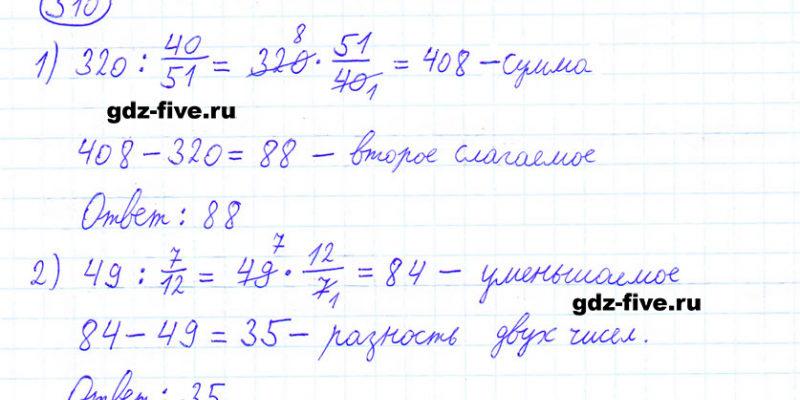 310
1) 320 : 40/51 = 320 8 · 51/40 1 = 408 – сумма
gdz-five.ru
408 – 320 = 88 – второе слагаемое
Ответ: 88
2) 49 : 7/12 = 49 7 · 12/7 1 = 84 – уменьшаемое
gdz-five.ru
84 – 49 = 35 – разность двух чисел.
Ответ: 35